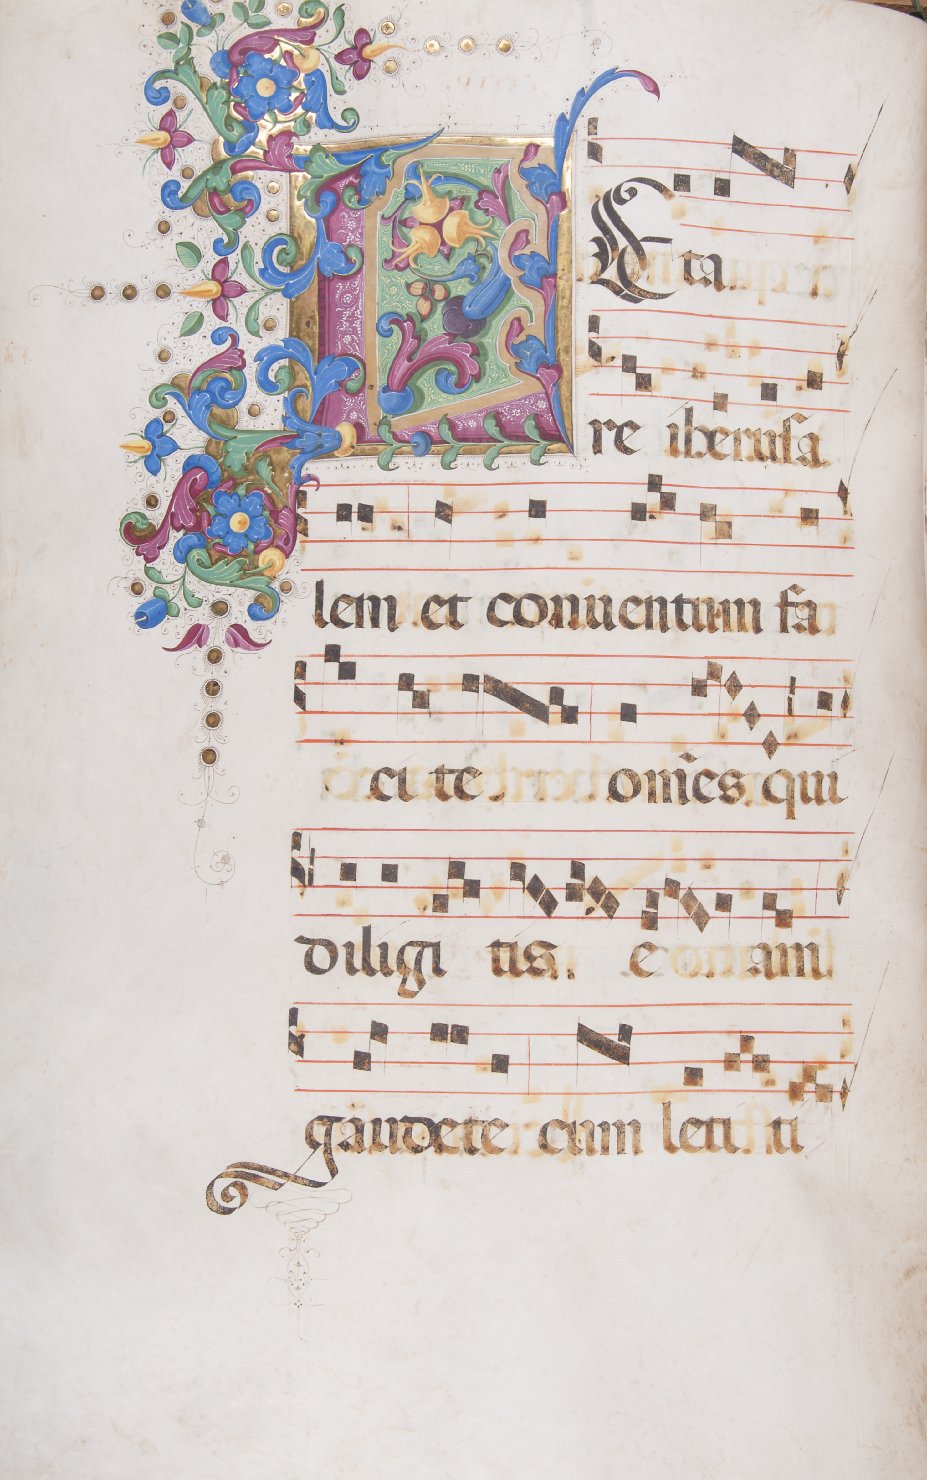 LEta
re iherusa
lem et conuentum fa
ci te om̄es. qui
diligi tis. e am
gaudete cum leti ti